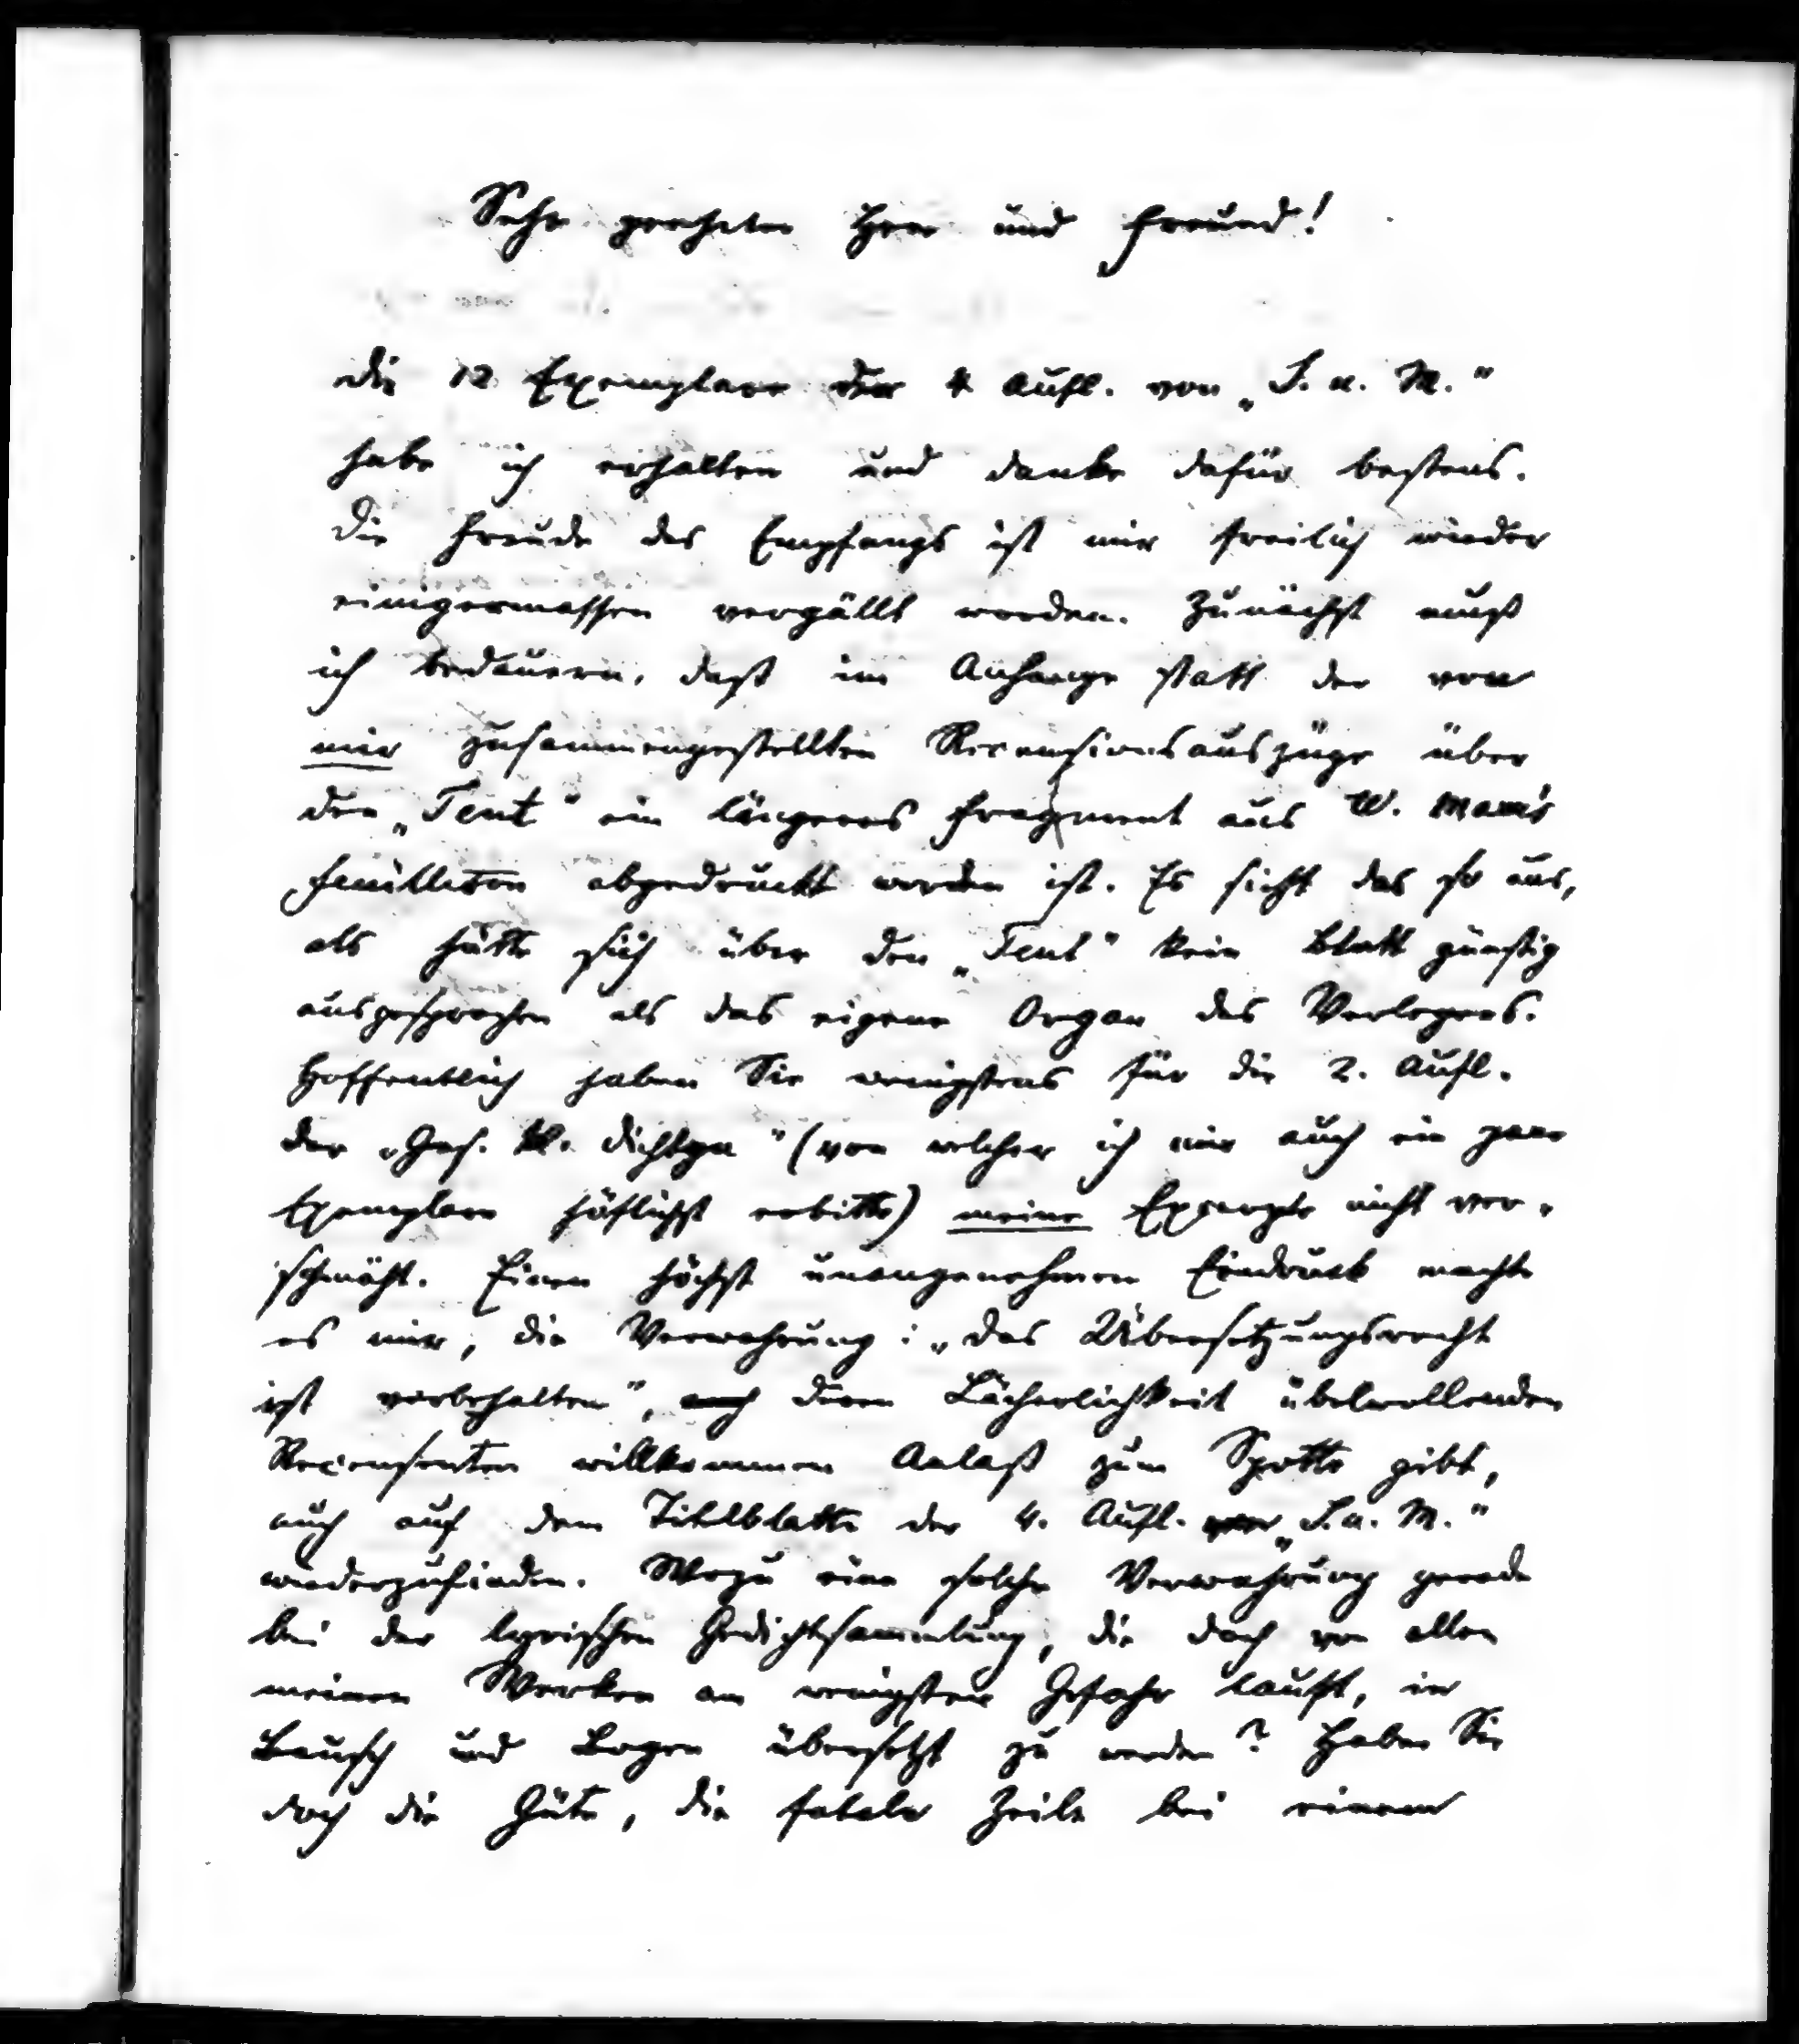 Sehr geehrter Herr und Freund!
Die 12 Exemplare der 4 Aufl. von „S. u. M."
habe ich erhalten und danke dafür bestens.
Die Freude des Empfangs ist mir freilich wieder
einigermassen vergällt worden. Zunächst muß
ich bedauern, daß im Anhange statt der von
mir zusammengestellten Recensionsauszüge über
den „Teut" ein längeres Fragment aus W. Marr's
Feuilleton abgedruckt worden ist. Es sieht das so aus,
als hätte sich über den „Teut" kein Blatt günstig
ausgesprochen als das eigene Organ des Verlegers.
Hoffentlich haben Sie wenigstens für die 2. Aufl.
der „Ges. kl. Dichtgn" (von welcher ich mir auch ein paar
Exemplare höflichst erbitte) meine Excerpte nicht ver-
schmäht. Einen höchst unangenehmen Eindruck machte
es mir, die Verwahrung: „Das Übersetzungsrecht
ist vorbehalten", deren Lächerlichkeit übelwollenden
Recensenten willkommenen Anlaß zum Spotte gibt,
auch auf dem Titelblatte der 4. Aufl. von „S. u. M."
wiederzufinden. Wozu eine solche Verwahrung gerade
bei der lyrischen Gedichtsammlung, die doch von allen
meinen Werken am wenigsten Gefahr lauft, in
Bausch und Bogen übersetzt zu werden? Haben Sie
doch die Güte, die fatale Zeile bei einem